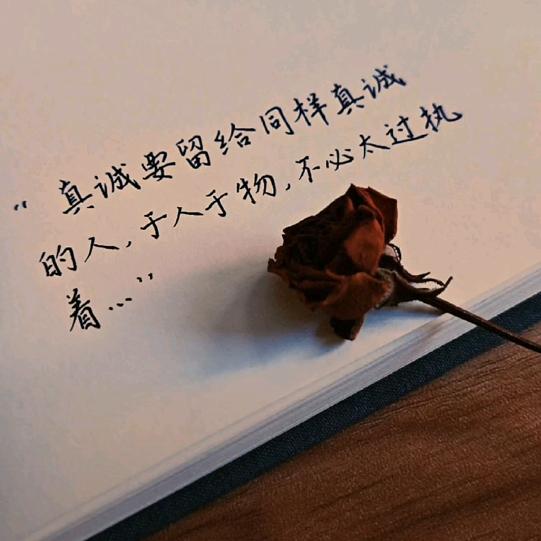 “真诚要留给同样真诚
的人，于人于物，不必太过执
着…”